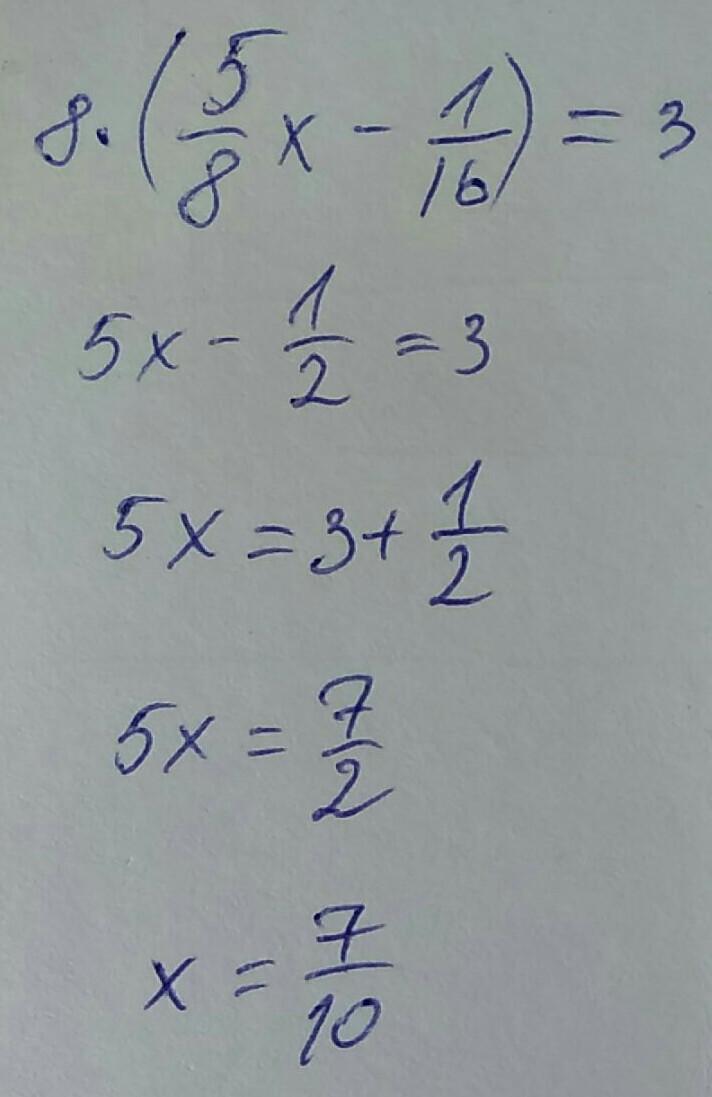 8·(5/8 x - 1/16) = 3
5x - 1/2 = 3
5x = 3 + 1/2
5x = 7/2
x = 7/10